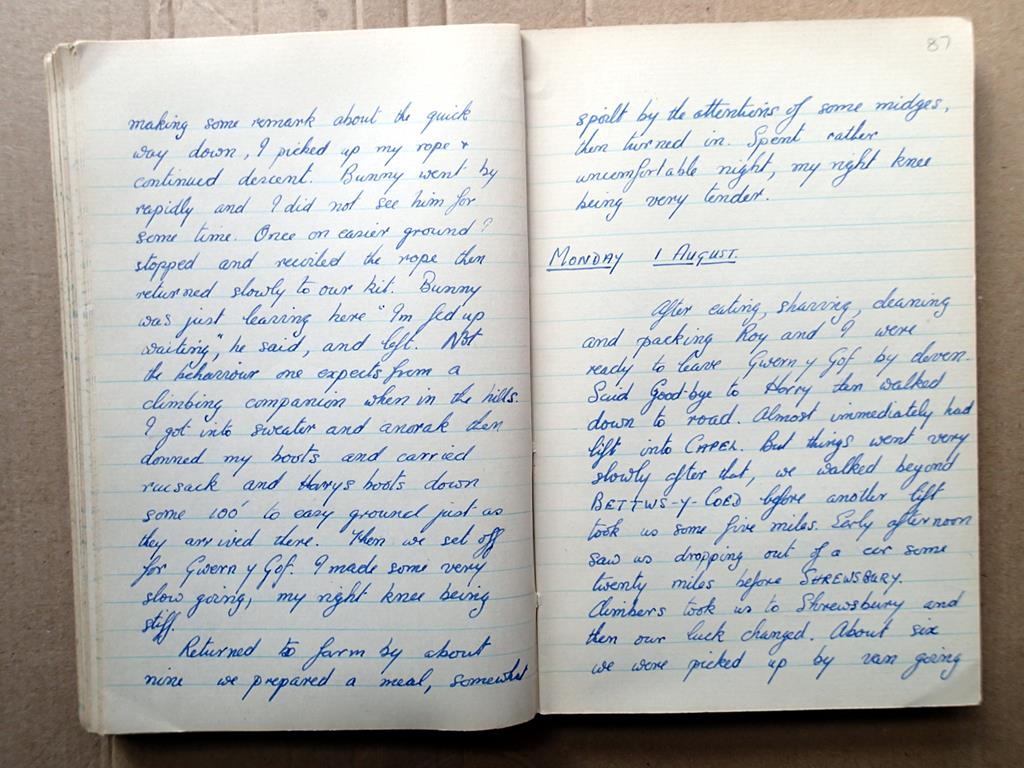 making some remark about the quick
way down, I picked up my rope +
continued descent. Bunny went by
rapidly and I did not see him for
some time. Once on easier ground I
stopped and recoiled the rope then
returned slowly to our kit. Bunny
was just leaving here "I'm fed up
waiting", he said, and left. Not
the behaviour one expects from a
climbing companion when in the hills.
I got into sweater and anorak then
donned my boots and carried
rucsack and Harrys boots down
some 100' to easy ground just as
they arrived there. Then we set off
for Gwern y Gof. I made some very
slow going, my right knee being
stiff.
Returned to farm by about
nine we prepared a meal, somewhat
87
spoilt by the attentions of some midges,
then turned in. Spent rather
uncomfortable night, my right knee
being very tender.
MONDAY 1 AUGUST.
After eating, shaving, cleaning
and packing Roy and I were
ready to leave Gwern y Gof by eleven.
Said Good-bye to Harry then walked
down to road. Almost immediately had
lift into CAPEL. But things went very
slowly after that, we walked beyond
BETTWS-Y-COED before another lift
took us some five miles. Early afternoon
saw us dropping out of a car some
twenty miles before SHREWSBURY.
Climbers took us to Shrewsbury and
then our luck changed. About six
we were picked up by van going